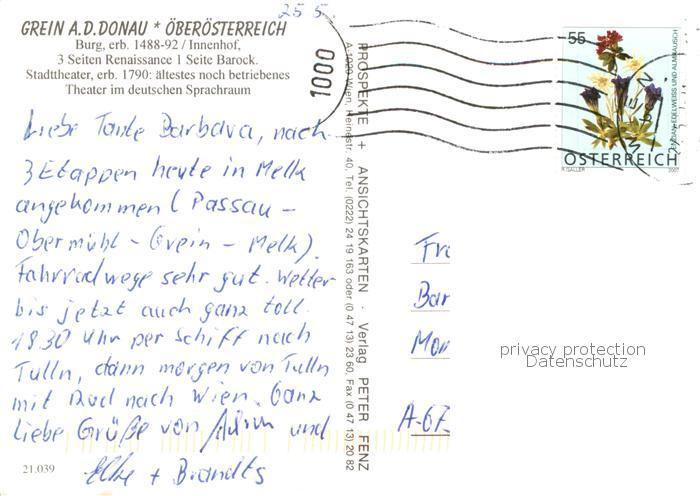 25 5.
GREIN A.D.DONAU * ÖBERÖSTERREICH
Burg, erb. 1488-92 / Innenhof,
3 Seiten Renaissance 1 Seite Barock.
Stadttheater, erb. 1790: ältestes noch betriebenes
Theater im deutschen Sprachraum
Liebe Tante Barbara, nach
3 Etappen heute in Melk
angekommen (Passau -
Obermühl - Grein - Melk).
Fahrradwege sehr gut. Wetter
bis jetzt auch ganz toll.
18.30 Uhr per Schiff nach
Tulln, dann morgen von Tulln
mit Rad nach Wien. Ganz
liebe Grüße von und
Elke + Brandts
21.039
PROSPEKTE + ANSICHTSKARTEN · Verlag PETER FENZ
A-1020 Wien, Heinestr. 40, Tel. (0222) 24 19 163 oder (0 47 13) 23 60, Fax (0 47 13) 20 82
1000
55
ENZIAN-EDELWEISS UND ALMRAUSCH
ÖSTERREICH
R.GALLER 2007
Fra
Bar
Mo
A-67
privacy protection
Datenschutz